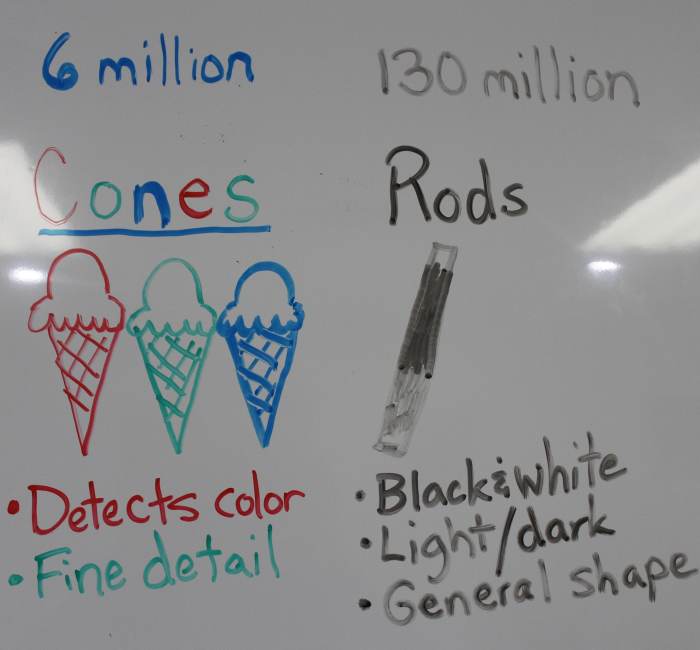 6 million
130 million
Cones
Rods
• Detects color
• Fine detail
• Black & white
• Light/dark
• General shape